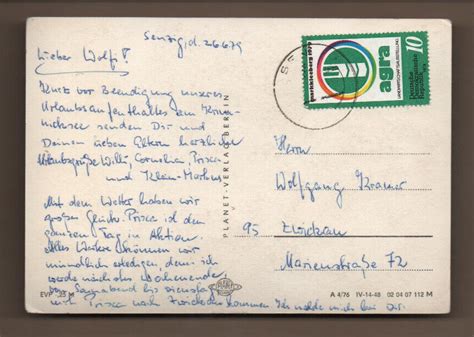 Senzig, d. 26.6.79
Lieber Wolfi!
Kurz vor Beendigung unseres
Urlaubsaufenthaltes am
senden Dir und
Deinen lieben Eltern herzliche
Urlaubsgrüße Willi, Cornelia
und Klein-Markus
Mit dem Wetter haben wir
großes Glück. ist den
ganzen Tag in Aktion.
Alles Weitere können wir
mündlich erledigen, denn ich
werde nächstes Wochenende
von Sonnabend bis Dienstag
mit nach Zwickau kommen. Ich melde mich bei Dir.
PLANET-VERLAG BERLIN
agra
10
Deutsche
Demokratische
Republik
Herrn
Wolfgang Kramer
95 Zwickau
Marienstraße 72
EVP
A 4/76 IV-14-48 02 04 07 112 M